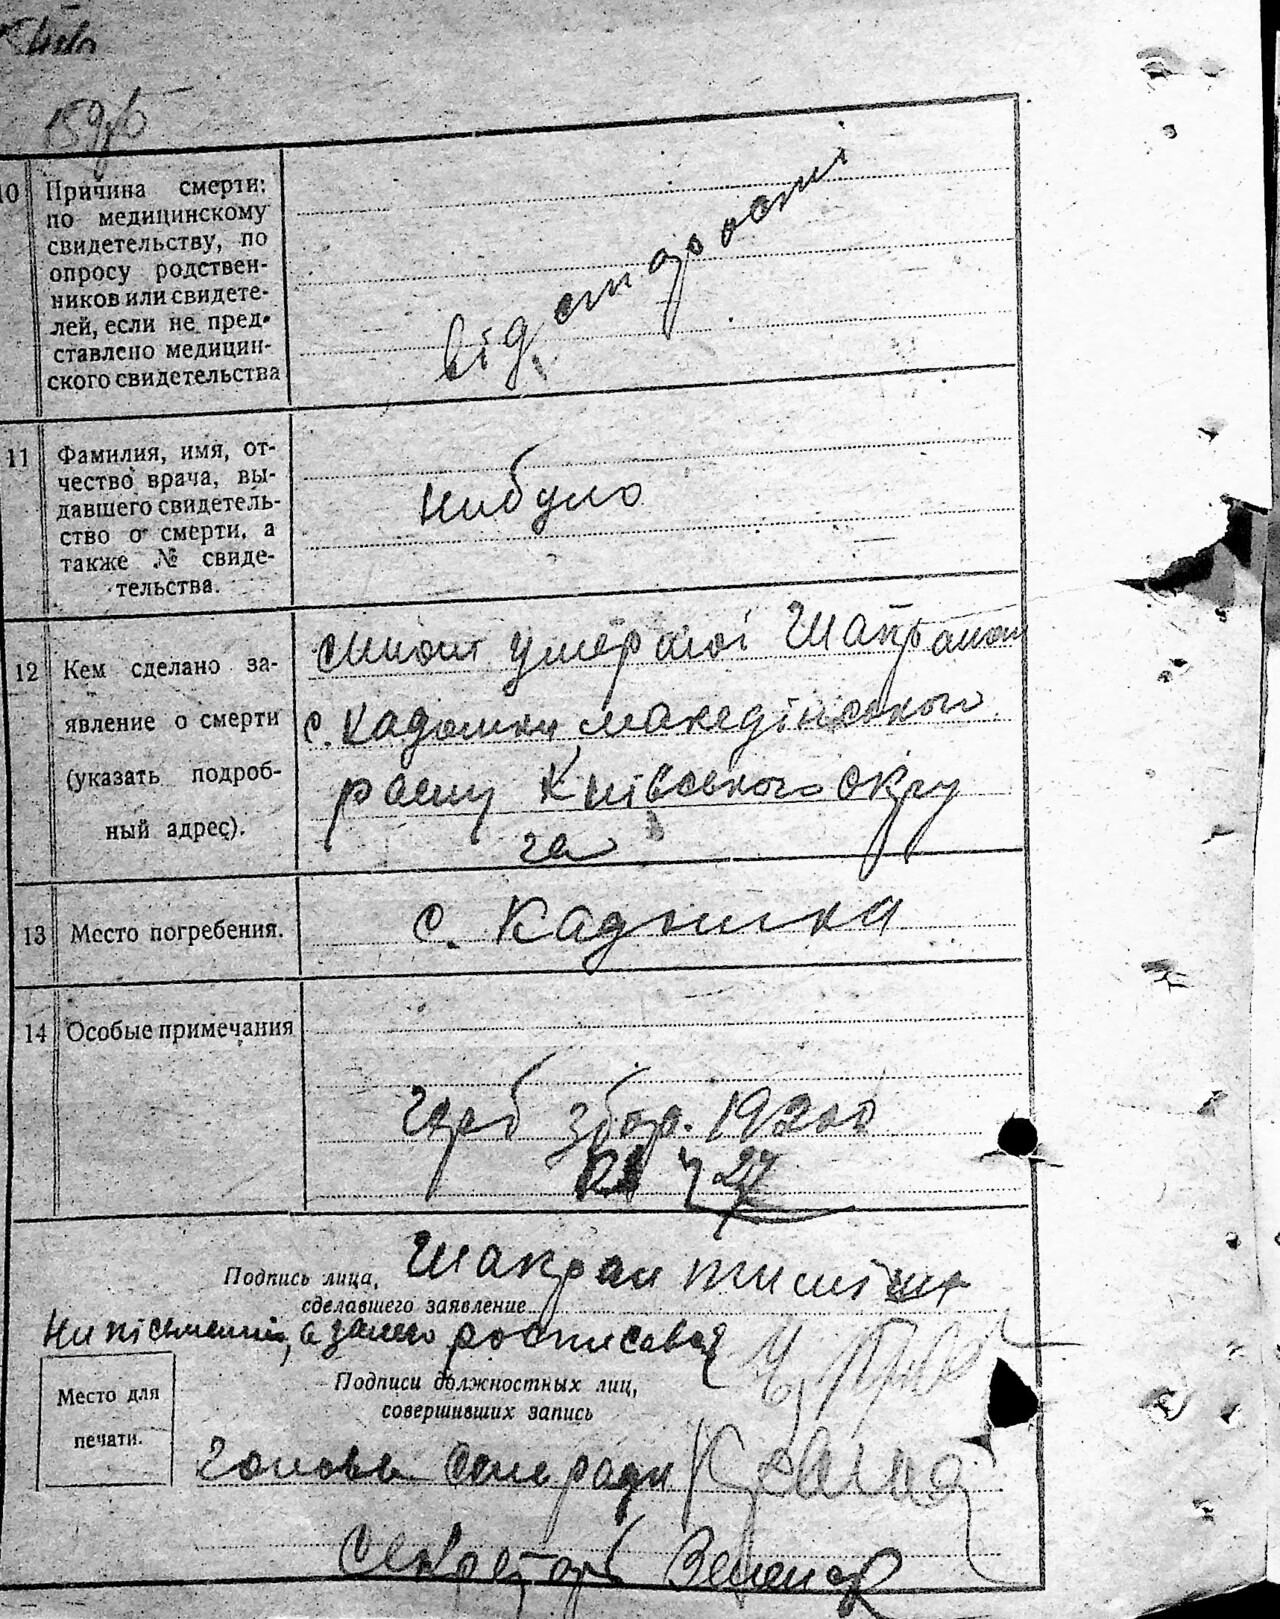 159
10 Причина смерти:
по медицинскому
свидетельству, по
опросу родствен-
ников или свидете-
лей, если не пред-
ставлено медицин-
ского свидетельства
від старости
11 Фамилия, имя, от-
чество врача, вы-
давшего свидетель-
ство о смерти, а
также № свиде-
тельства.
нибуло
12 Кем сделано за-
явление о смерти
(указать подроб-
ный адрес).
умершоі
с. Кадомка македінського
раену Київського окру
га
13 Место погребения.
с. Кадомка
14 Особые примечания
Герб збор.
27
Подпись лица,
сделавшего заявление
Шакран
Ниписьменній, а занего росписався
Место для
печати.
Подписи должностных лиц,
совершивших запись
Голова Сельради
Секретарь